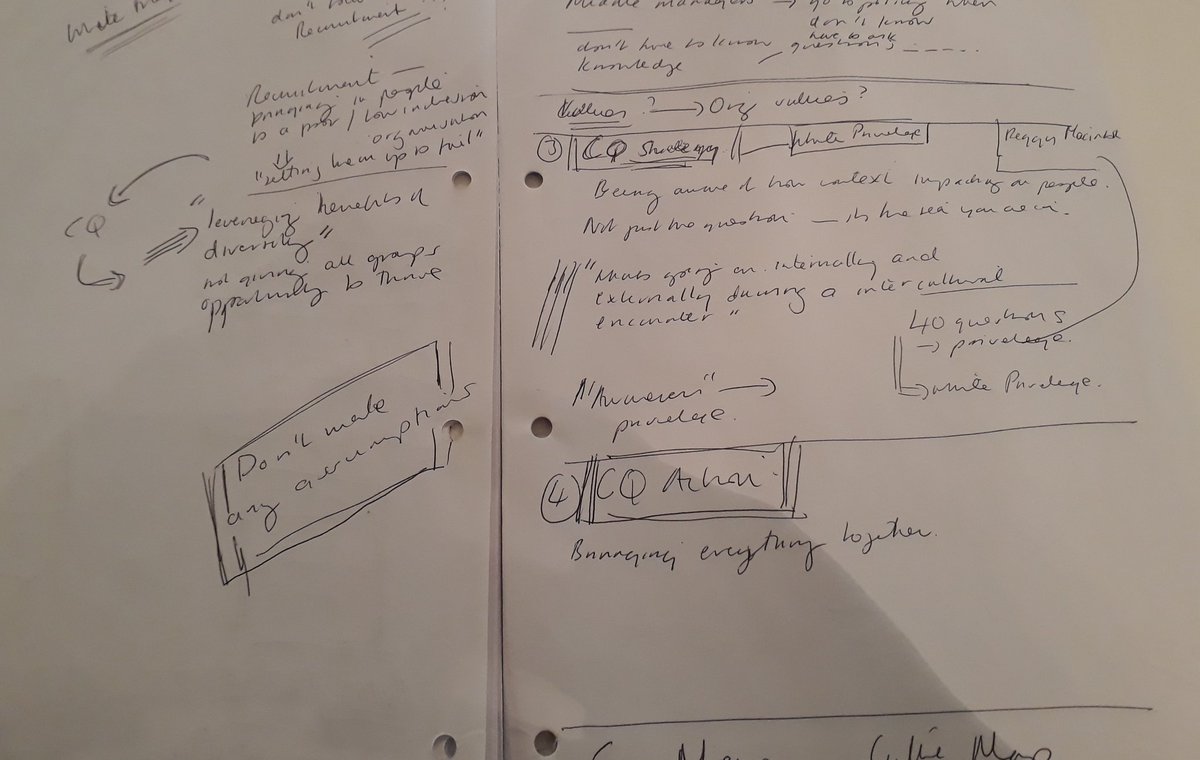 don't
Recruitment
Recruitment —
bringing in people
to a poor / low inclusion
organisation
"setting them up to fail"
CQ
"leveraging benefits of
diversity"
not giving all groups
opportunity to thrive
Don't make
any assumptions
Middle managers → go to when
don't know
have to ask
don't have to know questions -----
knowledge
Values? → Org values?
③ CQ Strategy — White Privilege Peggy Macintosh
Being aware of how context impacting on people.
Not just the question — its the sea you are in.
"Whats going on internally and
externally during a intercultural
encounter"
40 questions
→ privelege.
→ white Privelege.
"Awareness" →
privelege.
④ CQ Action
Bringing everything together.
Map